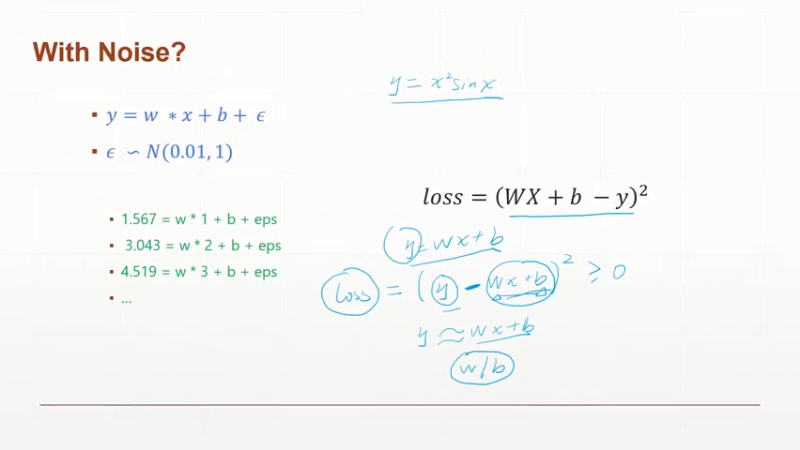 With Noise?
y = x²sinx
▪ y = w * x + b + ϵ
▪ ϵ ∽ N(0.01, 1)
loss = (WX + b − y)²
▪ 1.567 = w * 1 + b + eps
▪ 3.043 = w * 2 + b + eps
▪ 4.519 = w * 3 + b + eps
▪ ...
(y = wx+b
loss = (y - wx+b)² ≥ 0
y ≈ wx+b
w/b